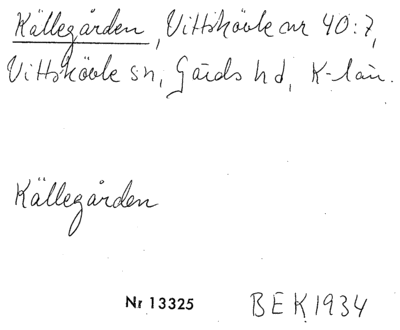 Källegården, Vittskövle nr 40:7,
Vittskövle sn, Gärds hd, K-län.
Källegården
Nr 13325 BEK 1934